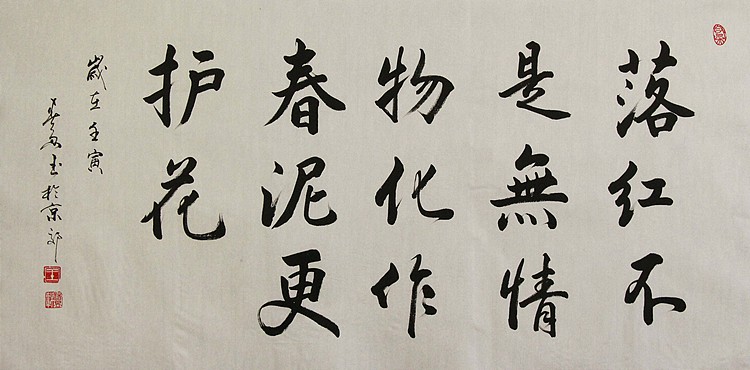 落红不
是無情
物化作
春泥更
护花
歲在壬寅
书於京郊